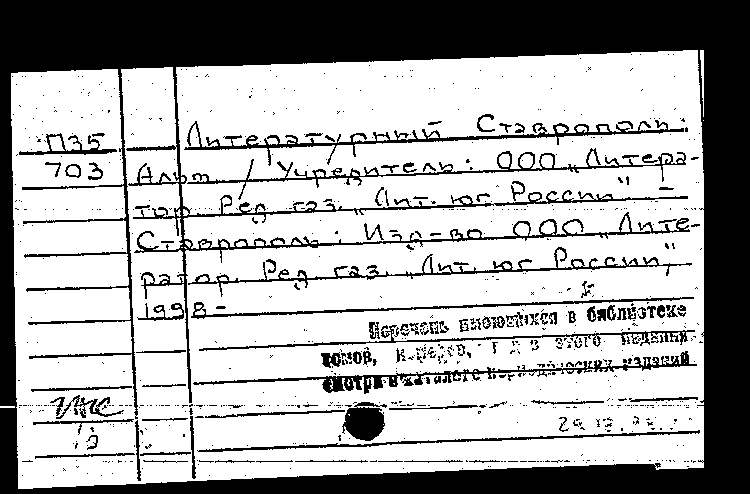 П35 Литературный Ставрополь:
703 Альм. / Учредитель: ООО „Литера-
тор. Ред. газ. „Лит. юг России" –
Ставрополь: Изд-во ООО „Лите-
ратор. Ред. газ. „Лит. юг России",
1998-
Перечень имеющихся в библиотеке
томов, номеров, этого издания
смотри в каталоге периодических изданий